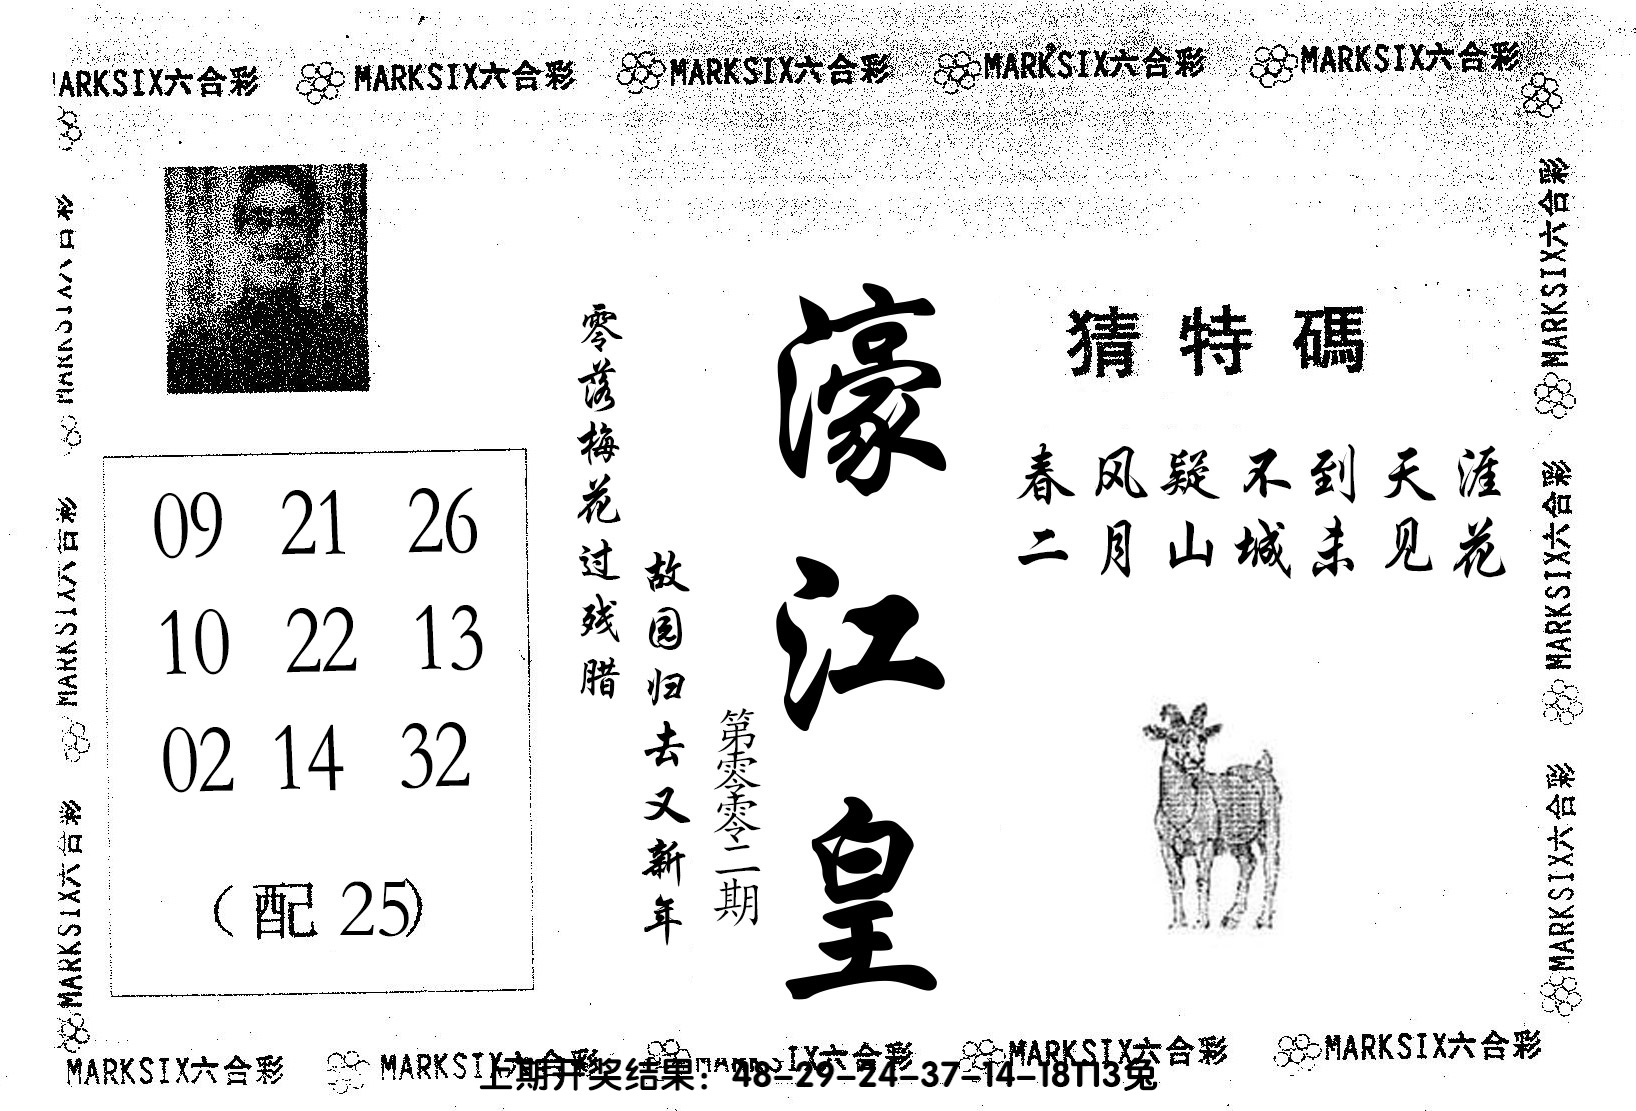 MARKSIX六合彩 MARKSIX六合彩 MARKSIX六合彩 MARKSIX六合彩
MARKSIX六合彩
猜特碼
春风疑不到天涯
二月山城未见花
濠江皇
第零零二期
故园归去又新年
零落梅花过残腊
09 21 26
10 22 13
02 14 32
(配 25)
MARKSIX六合彩
MARKSIX六合彩
MARKSIX六合彩
MARKSIX六合彩
MARKSIX六合彩
MARKSIX六合彩 MARKSIX六合彩 MARKSIX六合彩 MARKSIX六合彩
上期开奖结果：48-29-24-37-14-18T13兔